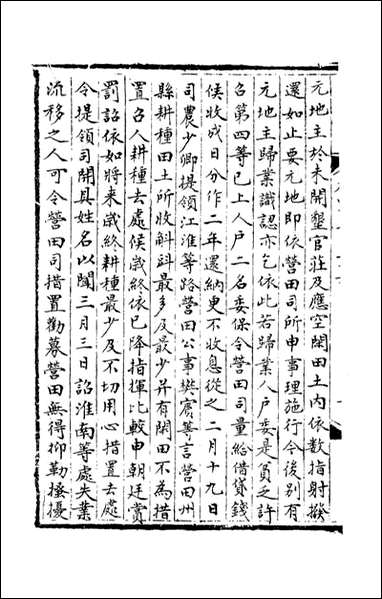 元地主於未開墾官莊及應空閑田土内依數指射撥
還如止要元地即依營田司所申事理施行今後别有
元地主歸業識認亦乞依此若歸業人户委是貧乏許
召第四等已上人户二名委保令營田司量給借貸錢
侯收成日分作二年還納更不收息從之二月十九日
司農少卿提領江淮等路營田公事樊賓等言營田州
縣耕種田土所收斛㪷最多及最少并有閑田不為措
置召人耕種去處侯歲終依已降指揮比較申朝廷賞
罰詔依如將來歲終耕種最少及不切用心措置去處
令提領司開具姓名以聞三月三日詔淮南等處失業
流移之人可令營田司措置勸募營田無得抑勒搔擾